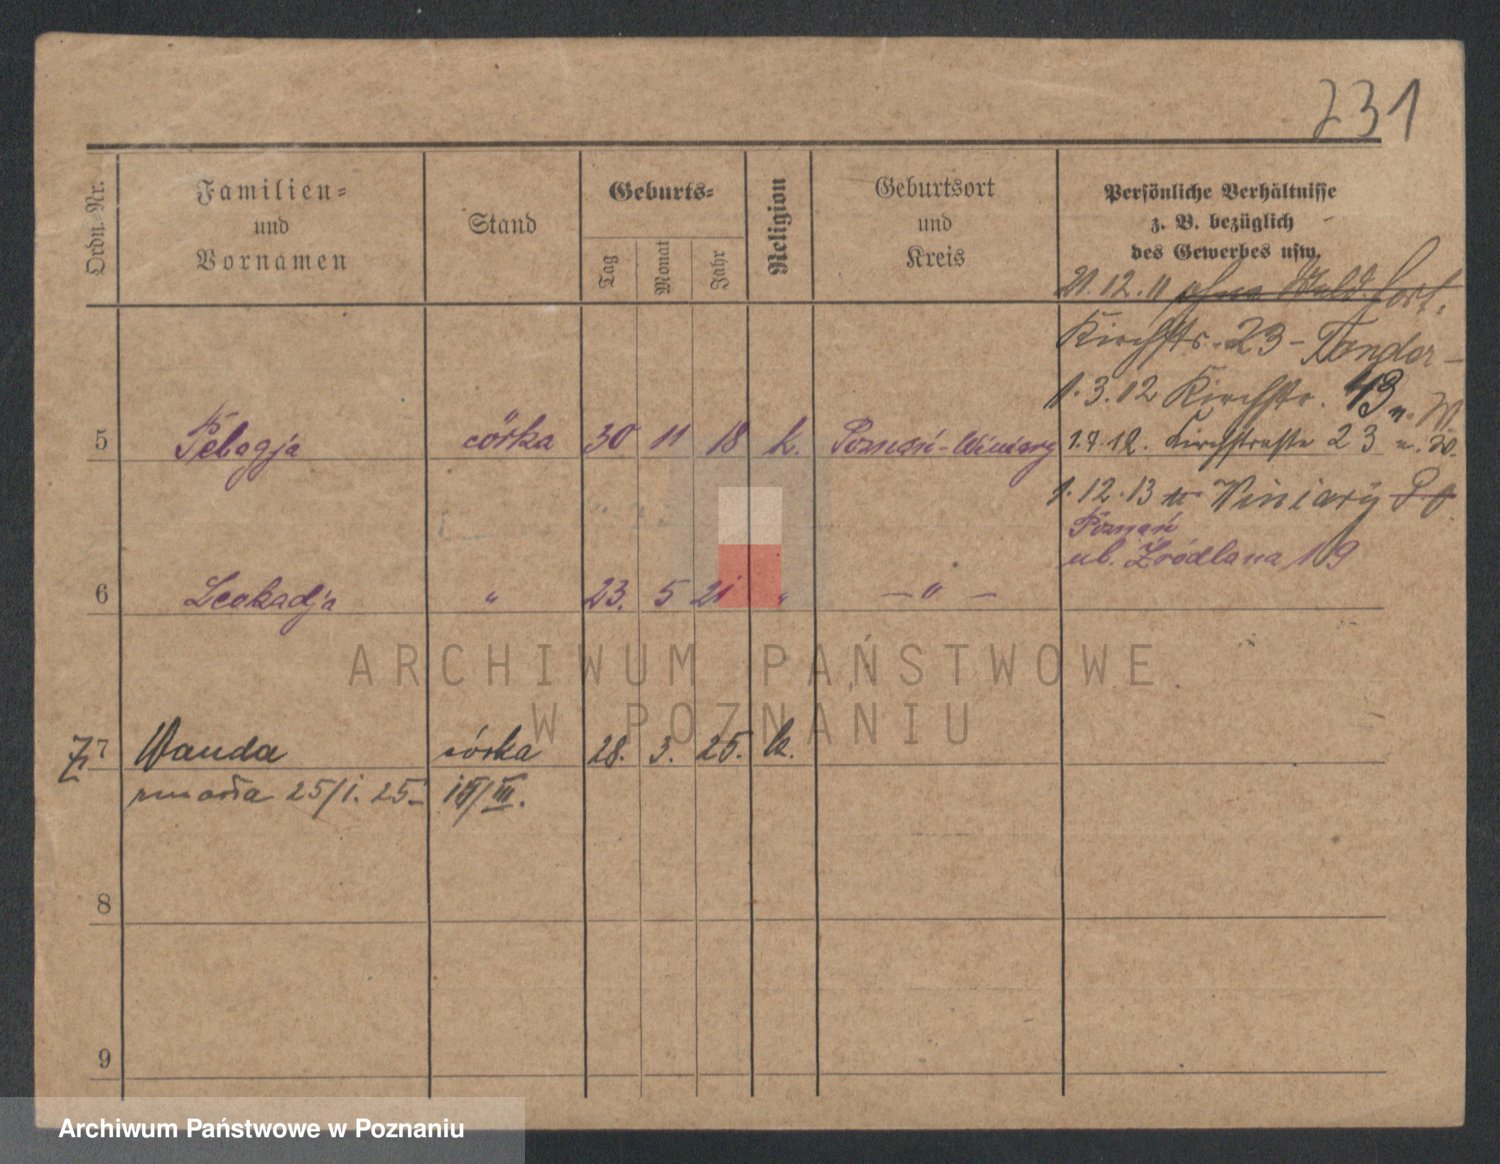 231
Ordn. Nr.
Familien-
und
Vornamen
Stand
Geburts-
Tag
Monat
Jahr
Religion
Geburtsort
und
Kreis
Persönliche Verhältnisse
z. B. bezüglich
des Gewerbes usw.
21.12.11
Kirchstr. 23 -
1.3.12 Kirchstr. 43
5 Pelagja córka 30 11 18 k. Poznań-Winiary 1.7.12. Kirchstraße 23 u. W.
1.12.13 Winiary
Poznań
ul. Źródlana 19
6 Leokadja " 23. 5 21 " — " —
ARCHIWUM PAŃSTWOWE
W POZNANIU
7 Wanda córka 28. 3. 25. k.
zmarła 25/1. 25
8
9
Archiwum Państwowe w Poznaniu